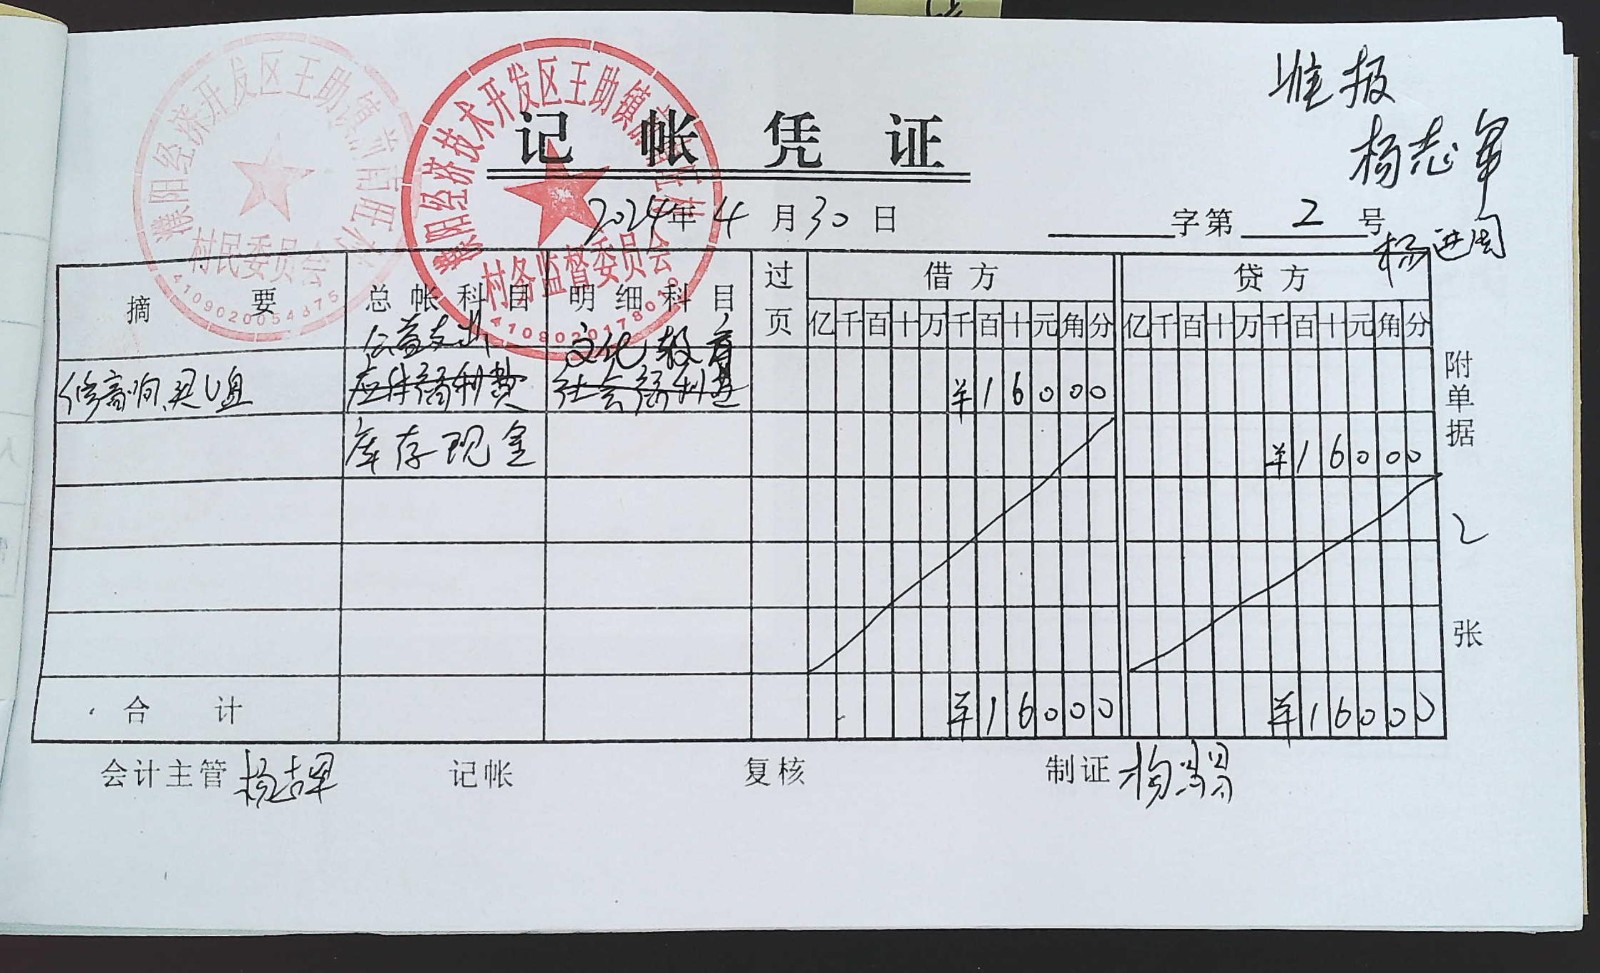 濮阳经济开发区王助镇
村民委员会
4109020054675
濮阳经济技术开发区王助镇
村务监督委员会
准报
杨志军
杨进国
记帐凭证
2024年4月30日
字第2号
摘要 总帐科目 明细科目 过页 借方 贷方
亿千百十万千百十元角分 亿千百十万千百十元角分
公益支出 文化教育
修音响、买U盘 应付福利费 社会福利 ¥16000
库存现金 ¥16000
合计 ¥16000 ¥16000
附单据2张
会计主管 记帐 复核 制证 杨